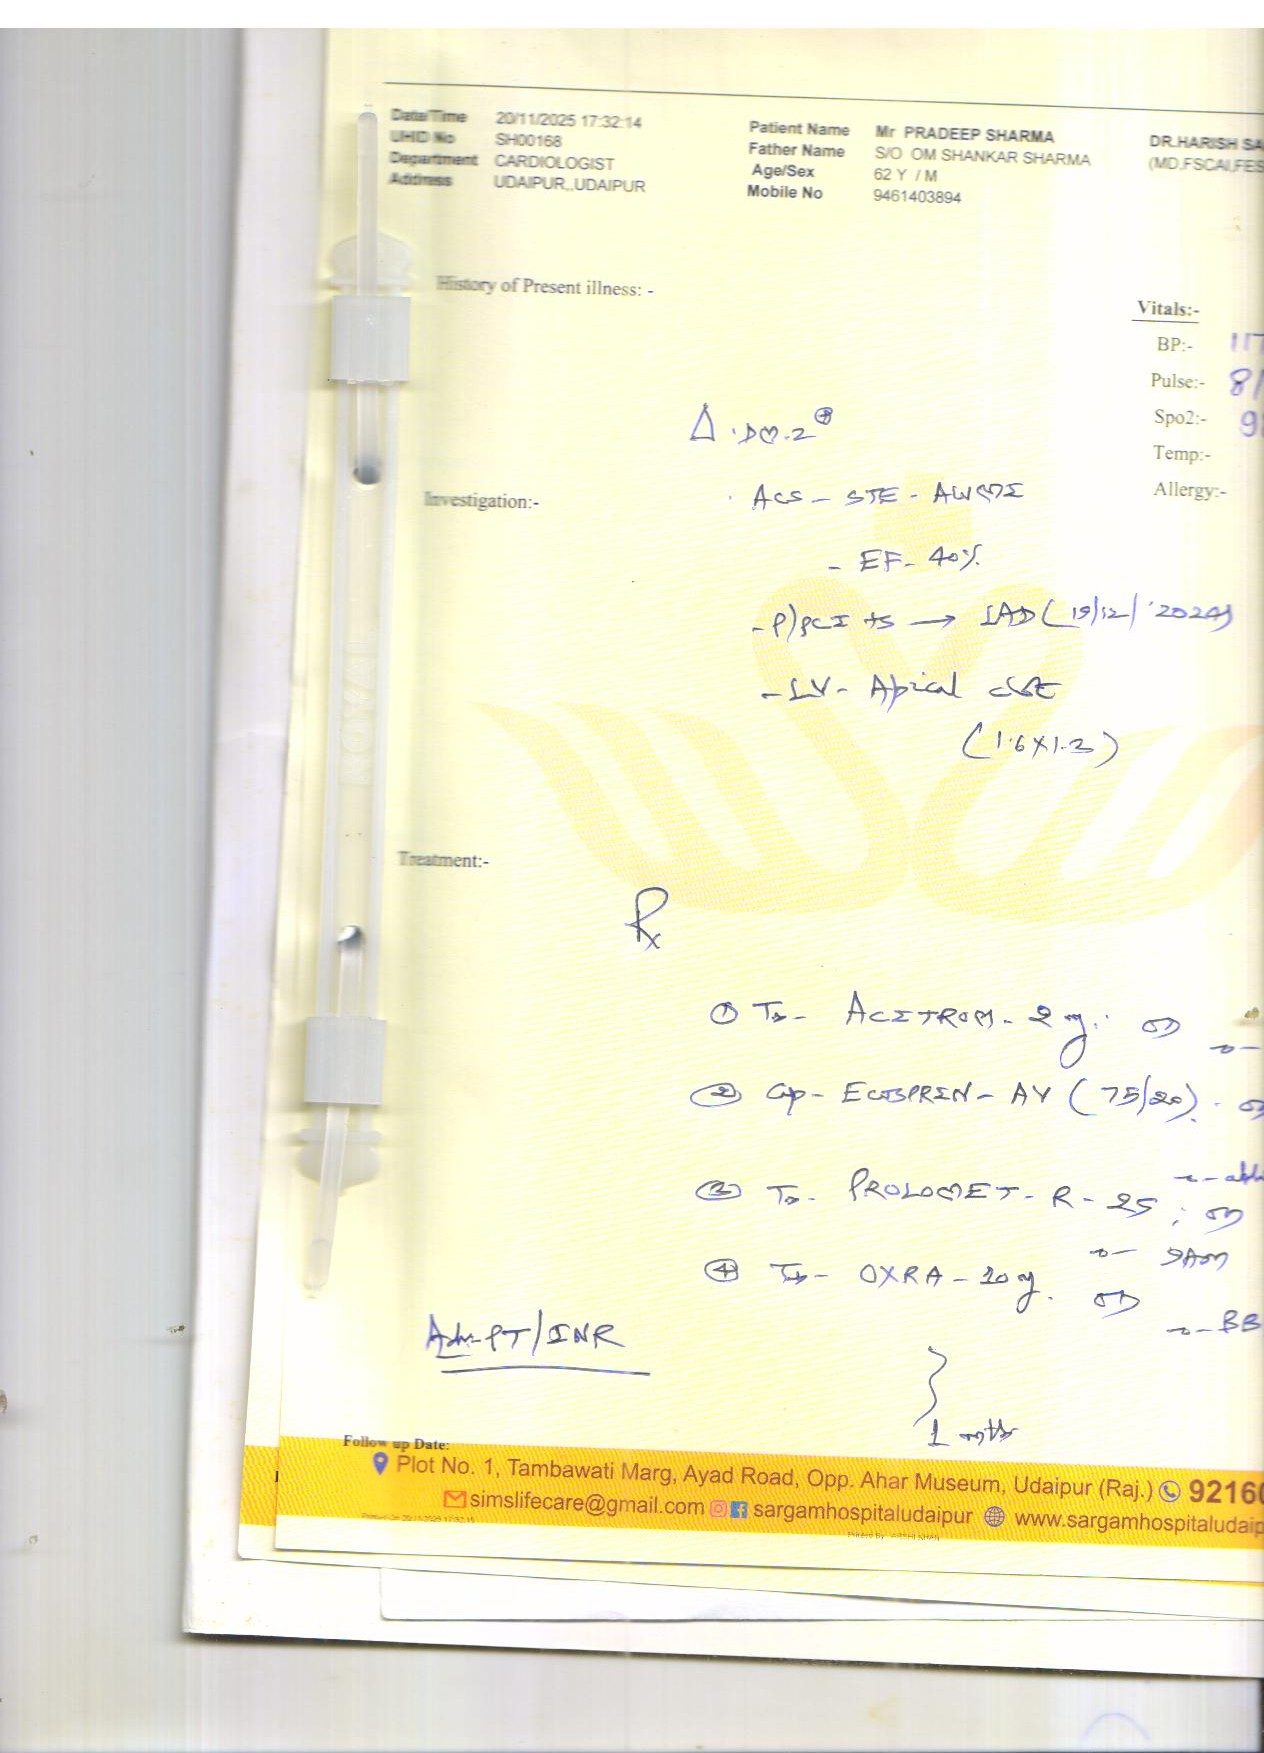 Date/Time 20/11/2025 17:32:14
UHID No SH00168
Department CARDIOLOGIST
Address UDAIPUR,,UDAIPUR
Patient Name Mr PRADEEP SHARMA
Father Name S/O OM SHANKAR SHARMA
Age/Sex 62 Y / M
Mobile No 9461403894
DR.HARISH SA
(MD,FSCAI,FES
History of Present illness: -
Vitals:-
BP:- 117
Pulse:- 8/
Spo2:- 9
Temp:-
Allergy:-
Δ . DM-2 ⊕
Investigation:-
. ACS - STE - AWMI
- EF - 40%
- P/PCI to → LAD (19/12/2024)
- LV - Apical clot
(1.6X1.3)
Treatment:-
Rx
① Tb- ACITROM - 2 mg. OD
② Cap- ECOSPRIN - AV (75/20). OD
③ Tb- PROLOMET - R - 25, OD
- 9AM
④ Tb- OXRA - 10 mg. OD
- BB
Adv- PT/INR
} 1 mth
Follow up Date:
Plot No. 1, Tambawati Marg, Ayad Road, Opp. Ahar Museum, Udaipur (Raj.) 9216
simslifecare@gmail.com sargamhospitaludaipur www.sargamhospitaludaip
ROYAL